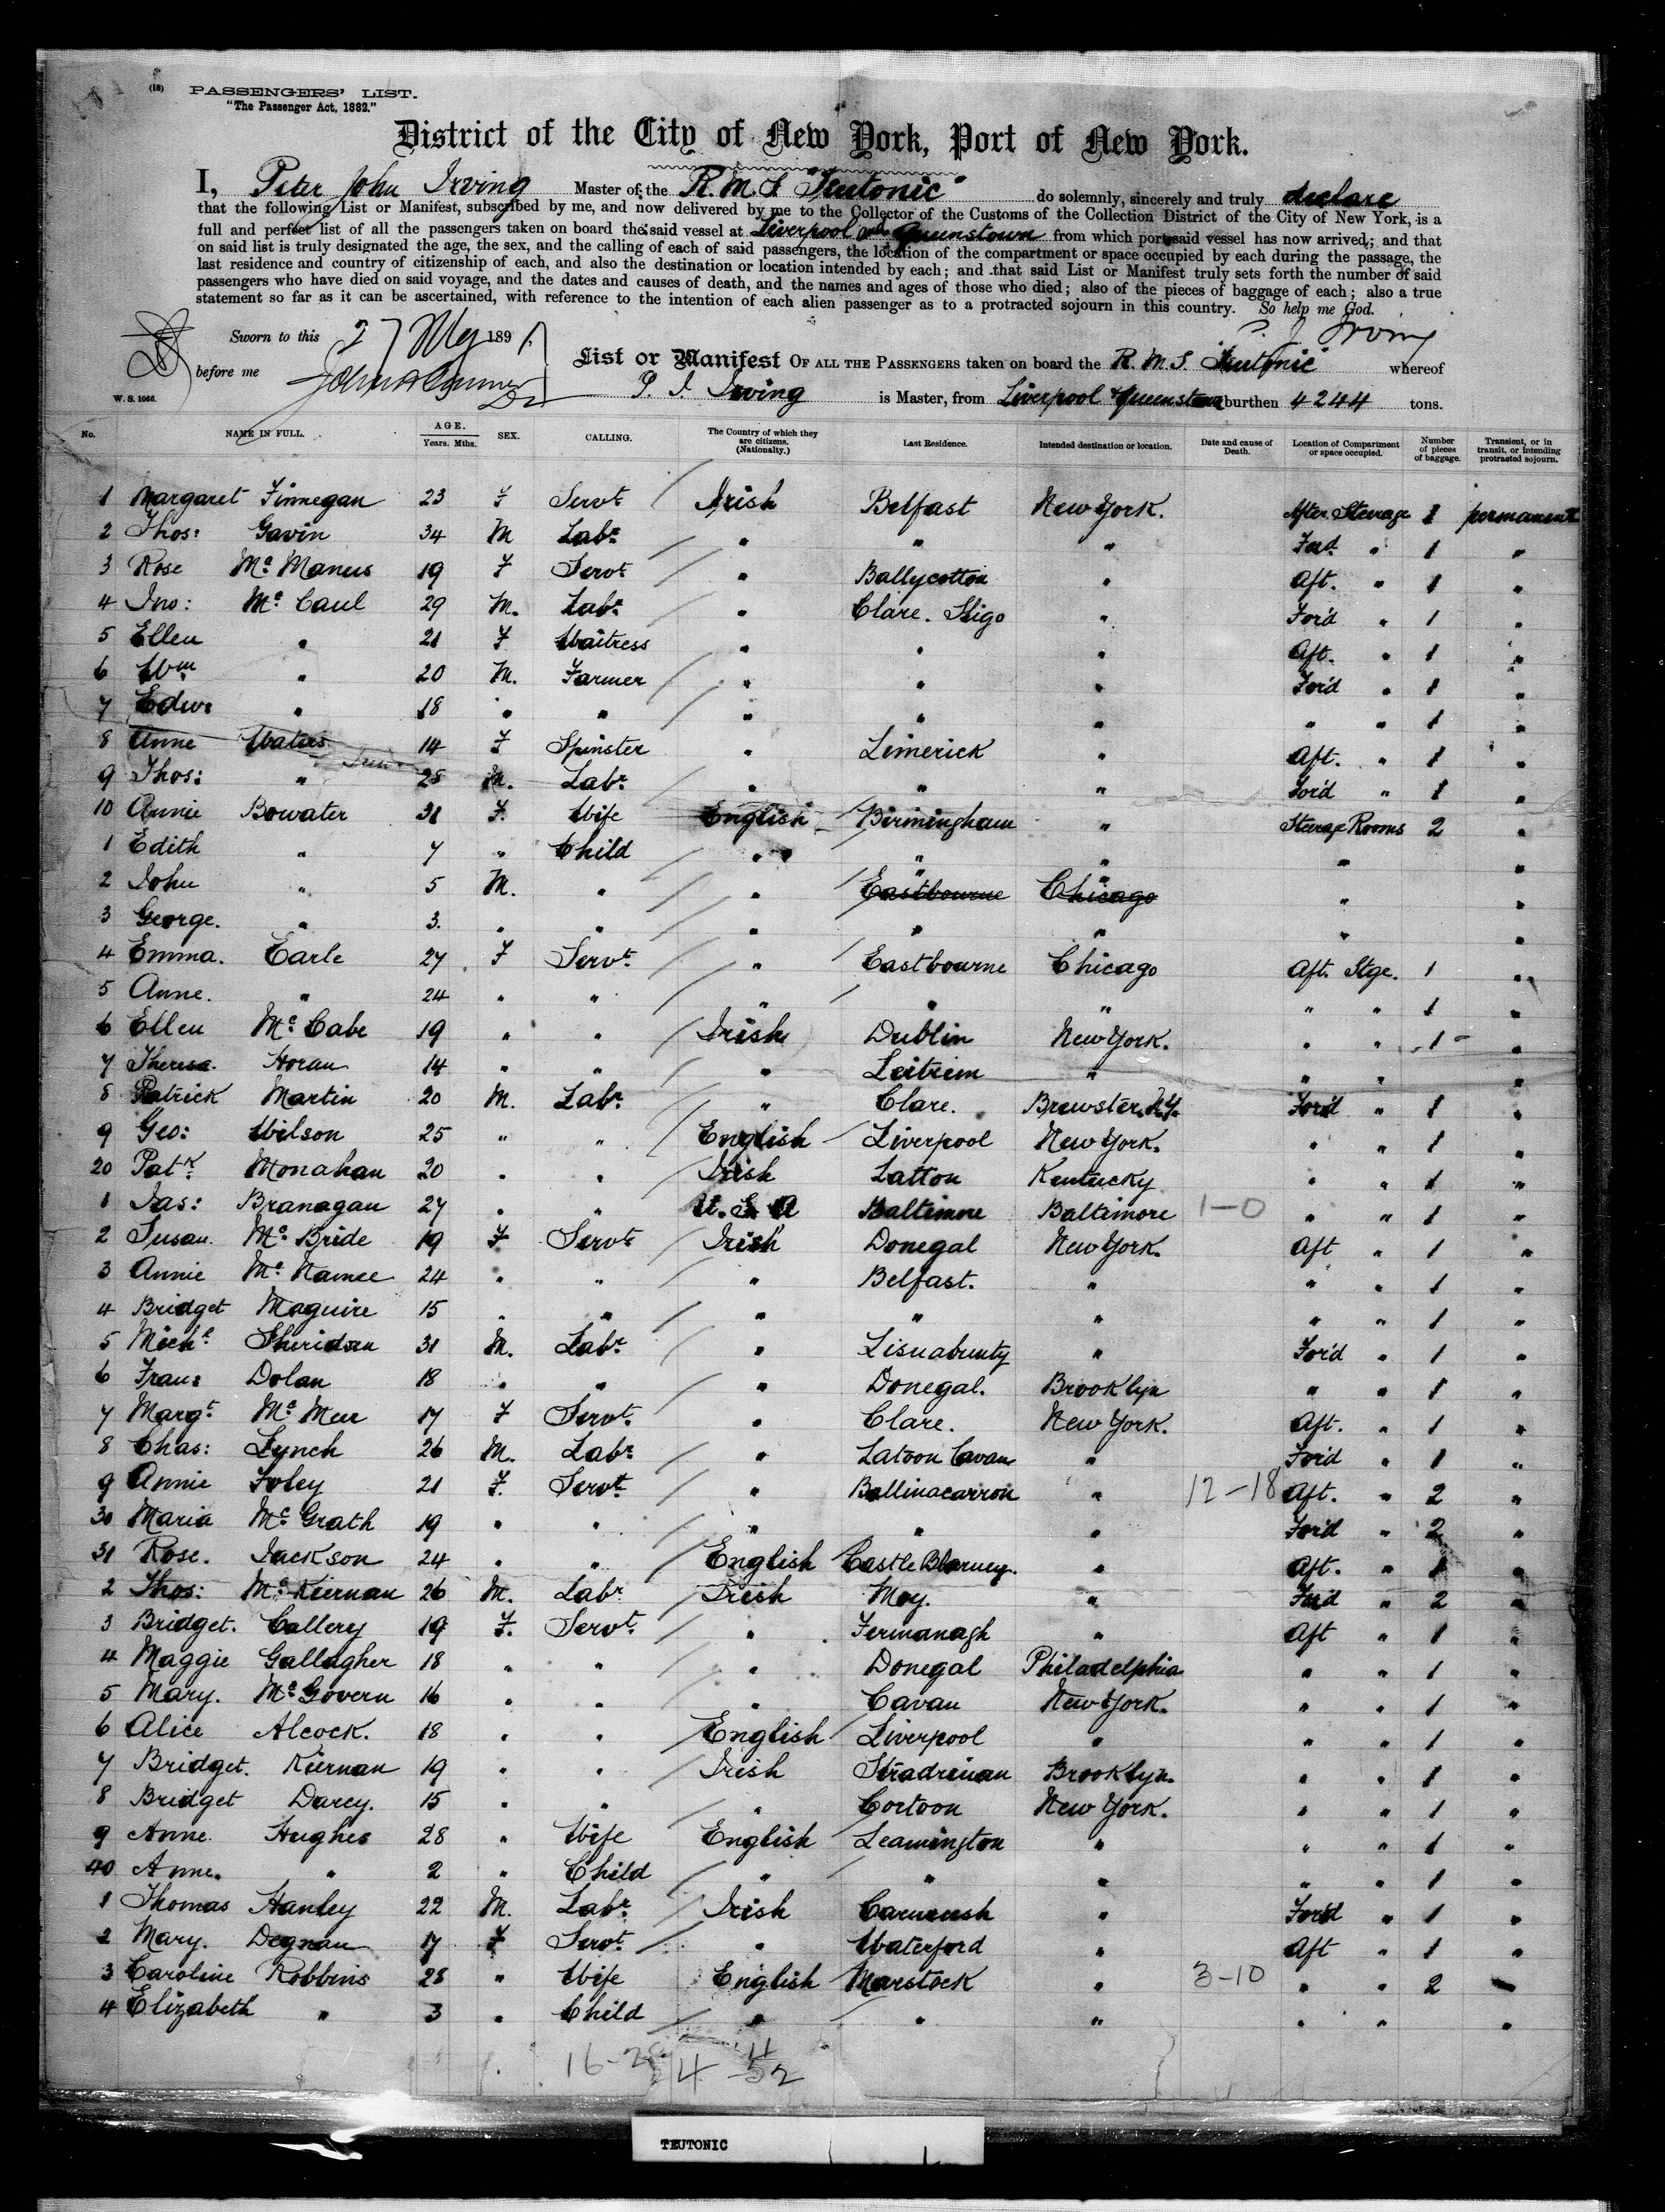 (18) PASSENGERS' LIST.
"The Passenger Act, 1882."
District of the City of New York, Port of New York.
I, Peter John Irving Master of the R.M.S. "Teutonic" do solemnly, sincerely and truly declare
that the following List or Manifest, subscribed by me, and now delivered by me to the Collector of the Customs of the Collection District of the City of New York, is a
full and perfect list of all the passengers taken on board the said vessel at Liverpool and Queenstown from which port said vessel has now arrived; and that
on said list is truly designated the age, the sex, and the calling of each of said passengers, the location of the compartment or space occupied by each during the passage, the
last residence and country of citizenship of each, and also the destination or location intended by each; and that said List or Manifest truly sets forth the number of said
passengers who have died on said voyage, and the dates and causes of death, and the names and ages of those who died; also of the pieces of baggage of each; also a true
statement so far as it can be ascertained, with reference to the intention of each alien passenger as to a protracted sojourn in this country. So help me God.
Sworn to this 27 May 1891. P. J. Irving
before me List or Manifest OF ALL THE PASSENGERS taken on board the R.M.S. "Teutonic" whereof
W. S. 1066. P. J. Irving is Master, from Liverpool & Queenstown burthen 4244 tons.
No. NAME IN FULL. AGE. Years. Mths. SEX. CALLING. The Country of which they are citizens. (Nationality.) Last Residence. Intended destination or location. Date and cause of Death. Location of Compartment or space occupied. Number of pieces of baggage. Transient, or in transit, or intending protracted sojourn.
1 Margaret Finnegan 23 F Servt Irish Belfast New York. After Steerage 1 permanent
2 Thos: Gavin 34 M Labr " " " Ford " 1 "
3 Rose McManus 19 F Servt " Ballycotton " Aft. " 1 "
4 Jno: McCaul 29 M. Labr " Clare. Sligo " For'd " 1 "
5 Ellen " 21 F Waitress " " " Aft. " 1 "
6 Wm " 20 M. Farmer " " " For'd " 1 "
7 Edw: " 18 " " " " " " " 1 "
8 Anne Waters 14 F Spinster " Limerick " Aft. " 1 "
9 Thos: " 28 M. Labr " " " For'd " 1 "
10 Annie Bowater 31 F. Wife English Birmingham " Steerage Rooms 2 "
1 Edith " 7 " Child " " " " "
2 John " 5 M. " " Eastbourne Chicago " "
3 George. " 3. " " " " " " "
4 Emma. Earle 27 F Servt " Eastbourne Chicago Aft. Stge. 1 "
5 Anne. " 24 " " " " " " " 1 "
6 Ellen McCabe 19 " " Irish Dublin New York. " " 1 "
7 Theresa. Horan 14 " " " Leitrim " " " "
8 Patrick Martin 20 M. Labr " Clare. Brewster, N.Y. For'd " 1 "
9 Geo: Wilson 25 " " English Liverpool New York. " " 1 "
20 Patk Monahan 20 " " Irish Latton Kentucky " " 1 "
1 Jas: Branagan 27 " " U.S.A Baltimore Baltimore 1-0 " " 1 "
2 Susan. McBride 19 F Servt Irish Donegal New York. Aft " 1 "
3 Annie McNamee 24 " " " Belfast. " " " 1 "
4 Bridget Maguire 15 " " " " " " " 1 "
5 Michl Sheridan 31 M. Labr " Lisnabunty " For'd " 1 "
6 Fran: Dolan 18 " " " Donegal. Brooklyn " " 1 "
7 Margt McMeer 17 F Servt " Clare. New York. Aft. " 1 "
8 Chas: Lynch 26 M. Labr " Latoon Cavan " For'd " 1 "
9 Annie Foley 21 F. Servt " Ballinacarron " 12-18 Aft. " 2 "
30 Maria McGrath 19 " " " " " For'd " 2 "
31 Rose. Jackson 24 " " English Castle Blarney. " Aft. " 1 "
2 Thos: McKiernan 26 M. Labr Irish Moy. " Ford " 2 "
3 Bridget. Callery 19 F. Servt " Fermanagh " Aft " 1 "
4 Maggie Gallagher 18 " " " Donegal Philadelphia " " 1 "
5 Mary. McGovern 16 " " " Cavan New York. " " 1 "
6 Alice Alcock. 18 " " English Liverpool " " " 1 "
7 Bridget. Kiernan 19 " " Irish Stradrinan Brooklyn. " " 1 "
8 Bridget Darcy. 15 " " " Cortoon New York. " " 1 "
9 Anne. Hughes 28 " Wife English Leamington " " " 1 "
40 Anne. " 2 " Child " " " " " 1 "
1 Thomas Hanley 22 M. Labr Irish " For'd " 1 "
2 Mary. Degnan 17 F Servt " Waterford " Aft " 1 "
3 Caroline Robbins 28 " Wife English Marstock " 3-10 " " 2 "
4 Elizabeth " 3 " Child " " " " " "
16-28 4 11
52
TEUTONIC